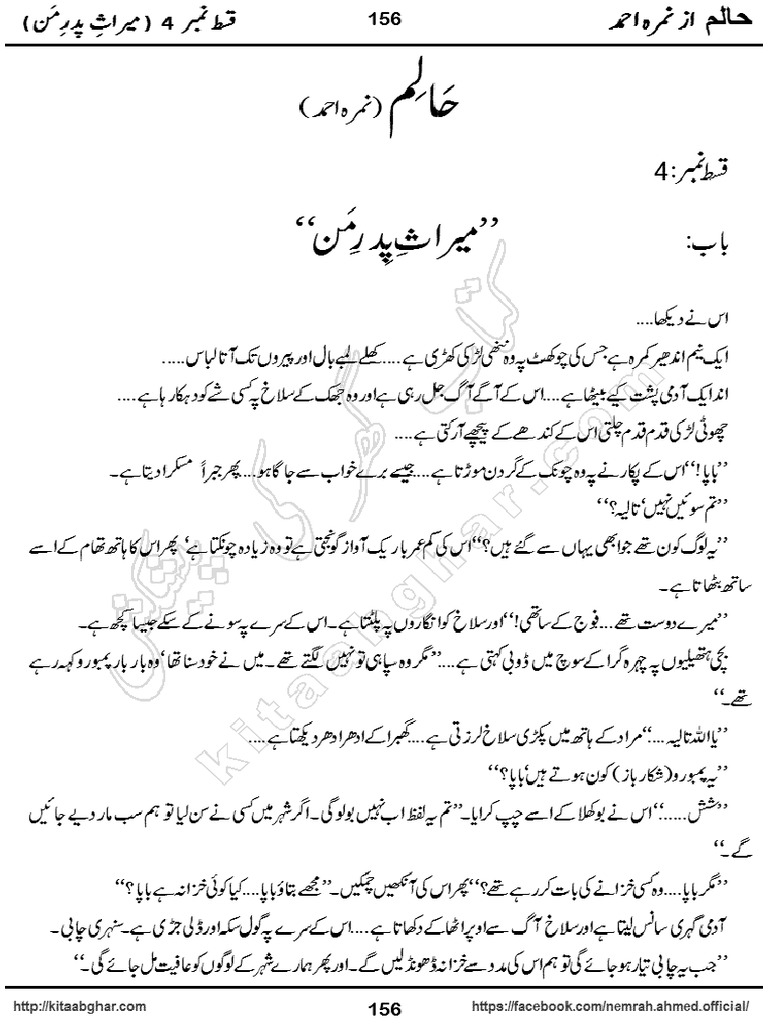 حالم از نمرہ احمد 156 قسط نمبر 4 (میراثِ پدرِ مَن)
حَالِم (نمرہ احمد)
قسط نمبر: 4
باب: ’’میراثِ پِدرِ مَن‘‘
اس نے دیکھا....
ایک نیم اندھیر کمرہ ہے جس کی چوکھٹ پہ وہ ننھی لڑکی کھڑی ہے....کھلے لمبے بال اور پیروں تک آتا لباس.....
اندر ایک آدمی پشت کیے بیٹھا ہے....اس کے آگے آگ جل رہی ہے اور وہ جھک کے سلاخ پہ کسی شے کو دہکا رہا ہے....
چھوٹی لڑکی قدم قدم چلتی اس کے کندھے کے پیچھے آ رکتی ہے....
’’باپا!‘‘ اس کے پکارنے پہ وہ چونک کے گردن موڑتا ہے....جیسے برے خواب سے جاگا ہو....پھر جبراً مسکرا دیتا ہے۔
’’تم سوئیں نہیں‘ تالیہ؟‘‘
’’یہ لوگ کون تھے جو ابھی یہاں سے گئے ہیں؟‘‘ اس کی کم عمر باریک آواز گونجتی ہے تو وہ زیادہ چونکتا ہے‘ پھر اس کا ہاتھ تھام کے اسے
ساتھ بٹھاتا ہے۔
’’میرے دوست تھے...فوج کے ساتھی!‘‘ اور سلاخ کو انگاروں پہ پلٹتا ہے۔ اس کے سرے پہ سونے کے سکے جیسا کچھ ہے۔
بچی ہتھیلیوں پہ چہرہ گرا کے سوچ میں ڈوبی کہتی ہے....’’مگر وہ سپاہی تو نہیں لگتے تھے۔ میں نے خود سنا تھا‘ وہ بار بار پمبورو کہہ رہے
تھے۔‘‘
’’یا اللہ تالیہ....‘‘ مراد کے ہاتھ میں پکڑی سلاخ لرزتی ہے....گھبرا کے ادھر ادھر دیکھتا ہے....
’’یہ پمبورو (شکار باز) کون ہوتے ہیں‘ باپا؟‘‘
’’شش.....‘‘ اس نے بوکھلا کے اسے چپ کرایا۔ ’’تم یہ لفظ اب نہیں بولو گی۔ اگر شہر میں کسی نے سن لیا تو ہم سب مار دیے جائیں
گے۔‘‘
’’مگر باپا....وہ کسی خزانے کی بات کر رہے تھے؟‘‘ پھر اس کی آنکھیں چمکیں۔ ’’مجھے بتاؤ باپا....کیا کوئی خزانہ ہے باپا؟‘‘
آدمی گہری سانس لیتا ہے اور سلاخ آگ سے اوپر اٹھا کے دکھاتا ہے....اس کے سرے پہ گول سکہ اور ڈلی جڑی ہے۔ سنہری چابی۔
’’جب یہ چابی تیار ہو جائے گی تو ہم اس کی مدد سے خزانہ ڈھونڈ لیں گے۔ اور پھر ہمارے شہر کے لوگوں کو عافیت مل جائے گی۔‘‘
کتاب گھر کی پیشکش
kitaabghar.com
http://kitaabghar.com 156 https://facebook.com/nemrah.ahmed.official/